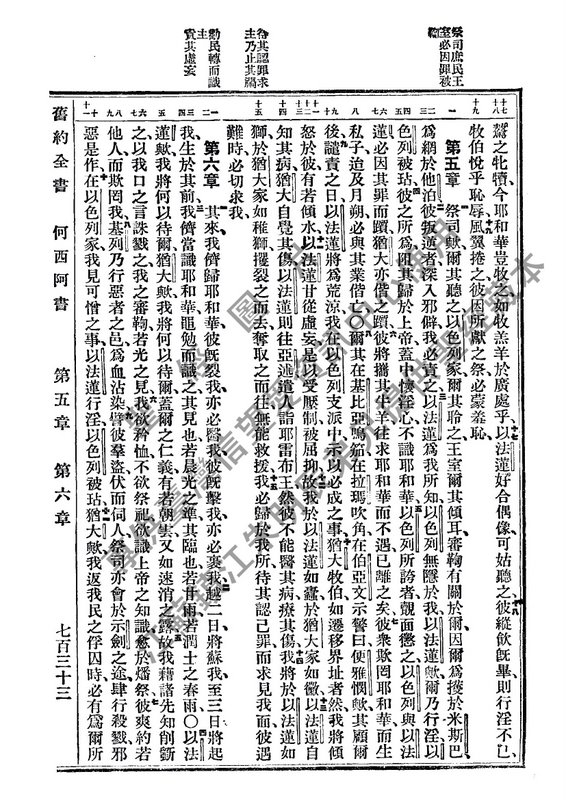 祭司庶民王
室必因罪被
待其認罪求
主乃止其禍
勸民轉而識
主
責其虛妄
鷙之牝犢今耶和華豈牧之如牧善羊於廣處乎以法蓮好合偶像可姑聽之彼縱飲旣畢則行淫不已
牧伯悅乎恥辱風翼捲之彼因所獻之祭必蒙羞恥
第五章 祭司歟爾其聽之以色列家爾其聆之王室爾其傾耳審鞫有關於爾因爾爲擭於米斯巴
爲網於他泊彼叛逆者深入邪僻我必責之以法蓮爲我所知以色列無隱於我以法蓮歟爾乃行淫以
色列被玷彼之所爲阻其歸於上帝蓋中懷淫心不識耶和華以色列所誇者覿面懲之以色列與以法
蓮必因其罪而躓猶大亦偕之躓彼將攜其牛羊往求耶和華而不遇已離之矣彼衆欺罔耶和華而生
私子迨及月朔必與其業偕亡〇爾其在基比亞鳴笳在拉瑪吹角在伯亞文示警曰便雅憫歟其顧爾
後譴責之日以法蓮將爲荒涼我在以色列支派中示以必成之事猶大牧伯如遷移界址者然我將傾
怒於彼有若傾水以法蓮甘從虛妄是以受壓制被屈抑故我於以法蓮如蠹於猶大家如黴以法蓮自
知其病猶大自覺其傷以法蓮則往亞述遣人詣耶雷布王然彼不能醫其病療其傷我將於以法蓮如
獅於猶大家如稚獅攫裂之而去奪取之而往無能救援我必歸於我所待其認己罪而求見我而彼遇
難時必切求我
第六章 其來我儕歸耶和華彼旣裂我亦必醫我彼旣擊我亦必裹我越二日將蘇我至三日將起
我生於其前我儕當識耶和華黽勉而識之其見也若晨光之準其臨也若甘雨若潤土之春雨〇以法
蓮歟我將何以待爾猶大歟我將何以待爾蓋爾之仁義有若朝雲又如速消之露故我藉諸先知削斵
之以我口之言誅戮之我之審鞫若光之見我愛矜恤不欲祭祀欲識上帝之知識愈於燔祭彼爽約若
他人而欺罔我基列乃行惡者之邑爲血沾染彼羣盜伏而伺人祭司亦會於示劍之途肆行殺戮邪
惡是作在以色列家我見可憎之事以法蓮行淫以色列被玷猶大歟我返我民之俘囚時必有爲爾所
舊約全書 何西阿書 第五章 第六章 七百三十三